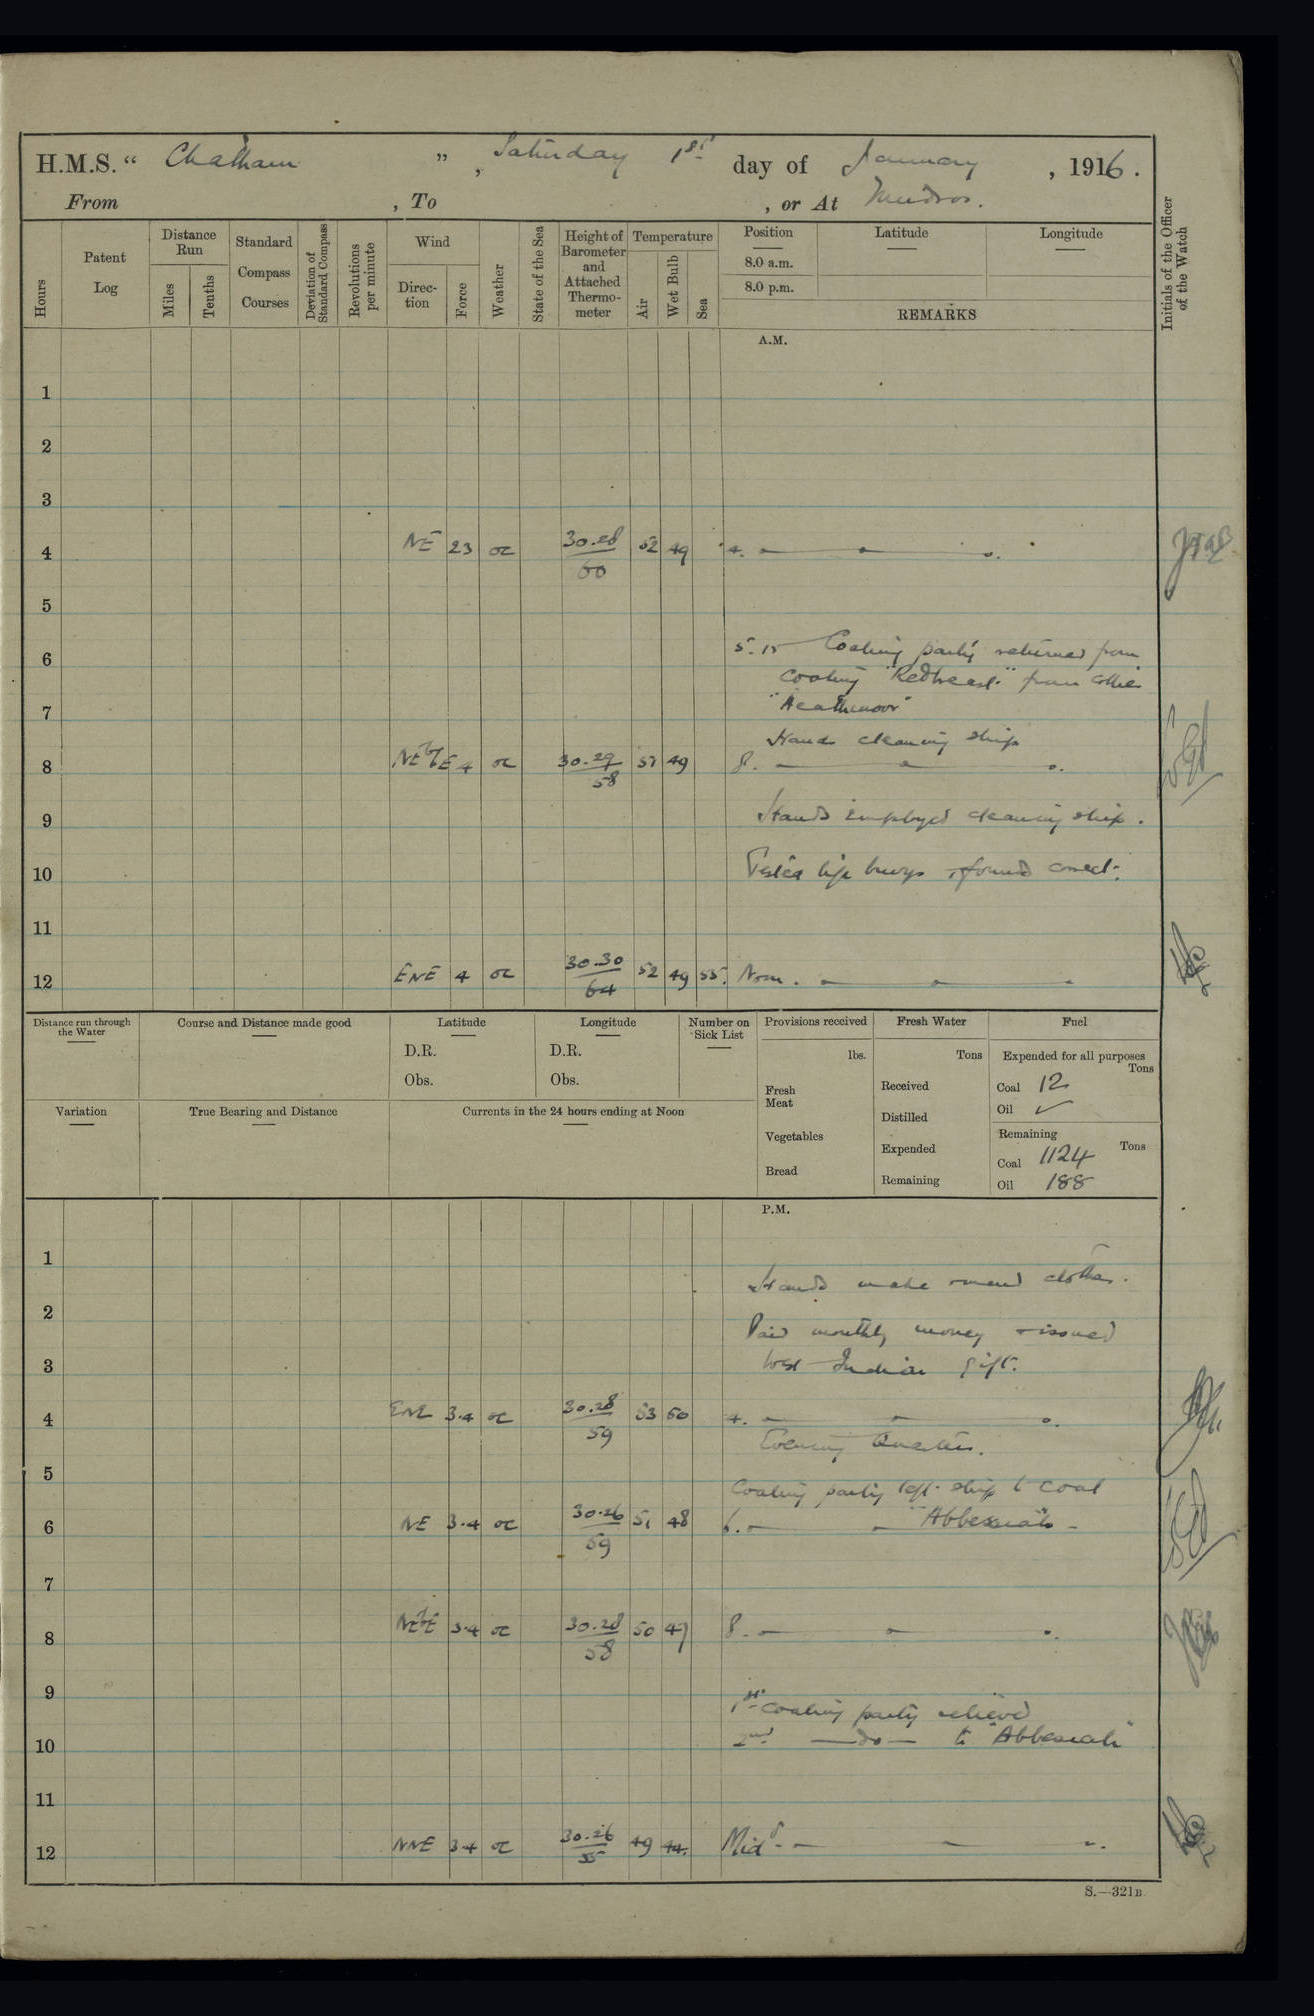 H.M.S. “ Chatham ” , Saturday 1st day of January , 1916 .
From , To , or At Mudros.
Hours
Patent Log
Distance Run
Miles
Tenths
Standard Compass Courses
Deviation of Standard Compass
Revolutions per minute
Wind
Direc-tion
Force
Weather
State of the Sea
Height of Barometer and Attached Thermo-meter
Temperature
Air
Wet Bulb
Sea
Position
8.0 a.m.
8.0 p.m.
Latitude
Longitude
REMARKS
Initials of the Officer of the Watch
A.M.
1
2
3
4 NE 23 oc 30.28 52 49 4.
60
5
5.15 Coaling party returned from
6
coaling "Redbreast" from collier
7 "Heathmoor"
Hands cleaning ship
8 NE by E 4 oc 30.29 51 49 8.
58
9 Hands employed cleaning ship.
10 Tested life buoys & found correct.
11
12 ENE 4 oc 30.30 52 49 55. Noon.
64
Distance run through the Water
Course and Distance made good
Latitude
D.R.
Obs.
Longitude
D.R.
Obs.
Number on Sick List
Provisions received
lbs.
Fresh Meat
Vegetables
Bread
Fresh Water
Tons
Received
Distilled
Expended
Remaining
Fuel
Expended for all purposes
Tons
Coal 12
Oil ✓
Remaining
Tons
Coal 1124
Oil 188
Variation
True Bearing and Distance
Currents in the 24 hours ending at Noon
P.M.
1
Hands make & mend clothes.
2 Paid monthly money & issued
3 West Indian gift.
4 ENE 3.4 oc 30.28 53 50 4.
59
Evening Quarters.
5 Coaling party left ship to coal
6 NE 3.4 oc 30.26 51 48 6. "Abbessieh"
59
7
8 NE by E 3.4 oc 30.28 50 47 8.
58
9
1st coaling party relieved
10 2nd do to "Abbessieh"
11
12 NNE 3.4 oc 30.26 49 44. Midt.
55
S.—321B